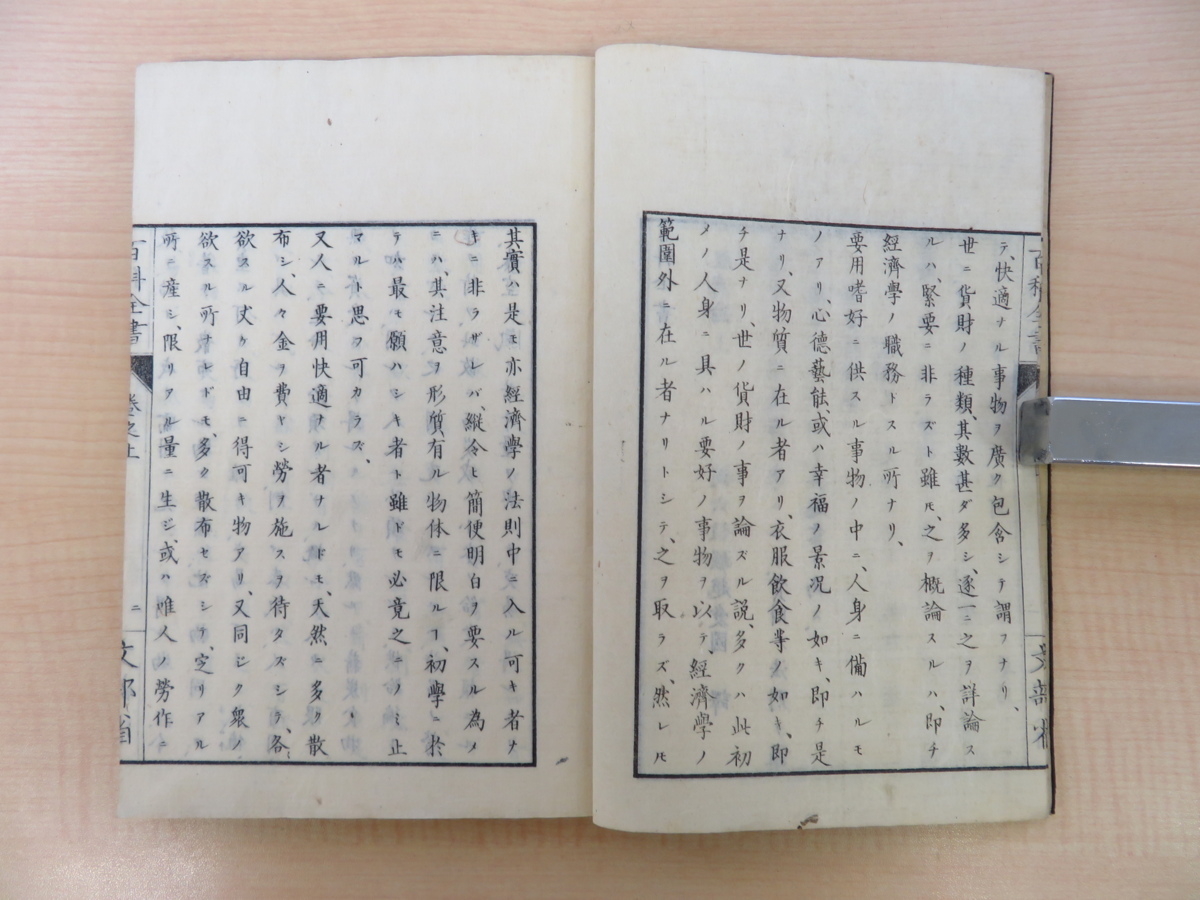 テ、快適ナル事物ヲ廣ク包含シテ謂フナリ、
世ニ貨財ノ種類、其數甚ダ多シ、逐一ニ之ヲ詳論ス
ルハ、緊要ニ非ラズト雖𪜈、之ヲ概論スルハ、即チ
經濟學ノ職務トスル所ナリ、
要用嗜好ニ供スル事物ノ中ニ、人身ニ備ハルモ
ノアリ、心德藝能、或ハ幸福ノ景況ノ如キ、即チ是
ナリ、又物質ニ在ル者アリ、衣服飲食等ノ如キ、即
チ是ナリ、世ノ貨財ノ事ヲ論ズル説、多クハ此初
メノ人身ニ具ハル要好ノ事物ヲ以テ、經濟學ノ
範圍外ニ在ル者ナリトシテ、之ヲ取ラズ、然レ𪜈
其實ハ是モ亦經濟學ノ法則中ニ入ル可キ者ナ
キニ非ラザレバ、縱令ヒ簡便明白ヲ要スル為メ
ニハ、其注意ヲ形質有ル物体ニ限ルヿ、初學ニ於
テハ最モ願ハシキ者ト雖ドモ必竟之ニノミ止
マルト思フ可カラズ、
又人ニ要用快適ナル者ナレドモ、天然ニ多ク散
布シ、人々金ヲ費ヤシ勞ヲ施スヲ待タズシテ、各、
欲スル丈ケ自由ニ得可キ物アリ、又同ジク衆ノ
欲スル所ナレドモ、多ク散布セズシテ、定リアル
所ニ産シ、限リアル量ニ生ジ、或ハ唯人ノ勞作ニ
百科全書 卷之上 二 文部省